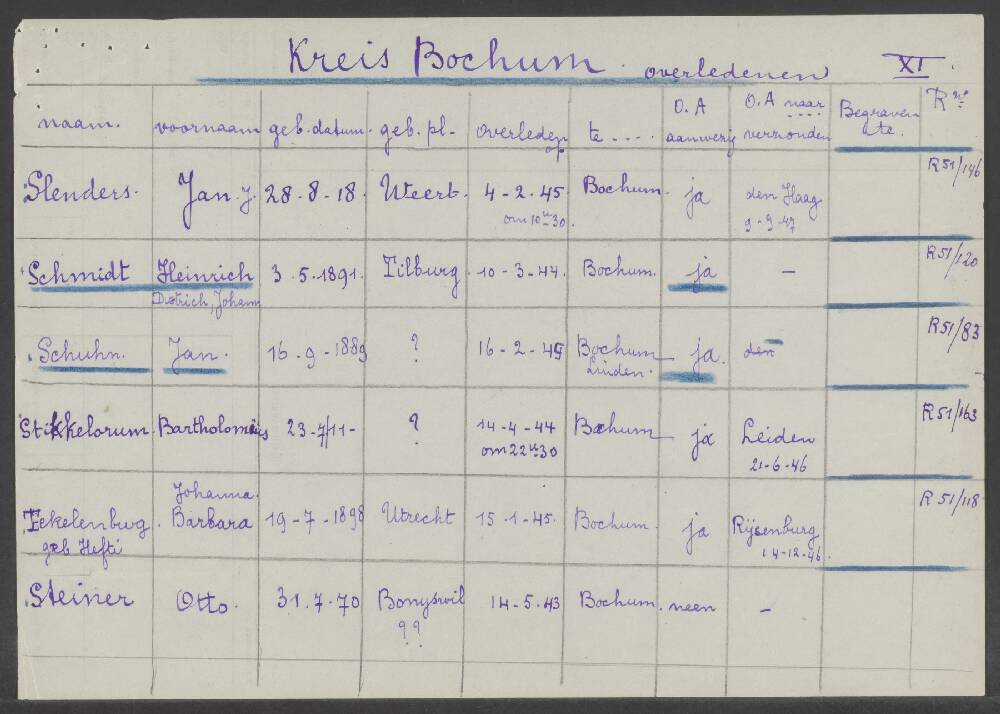 Kreis Bochum. overledenen XI.
naam. voornaam geb. datum. geb. pl. overleden op te .... O.A aanwezig O.A naar verzonden Begraven te. R nº
Slenders. Jan. J. 28-8-18. Weert. 4-2-45 om 10 u 30. Bochum. ja den Haag 9-9-47 R51/146
Schmidt Heinrich Dietrich, Johann 3-5-1891. Tilburg 10-3-44. Bochum. ja - R51/120
Schuhn. Jan. 16-9-1889 ? 16-2-45 Bochum Linden. ja. den R51/83
Stikkelorum Bartholomeus 23-7/11- ? 14-4-44 om 22 u 30 Bochum ja Leiden 21-6-46 R51/163
Tekelenburg. geb Hefti Johanna. Barbara 19-7-1898 Utrecht 15-1-45. Bochum. ja Rijsenburg 14-12-46. R51/118
Steiner Otto. 31.7-70 Bonyswil ?? 14-5-43 Bochum. neen -